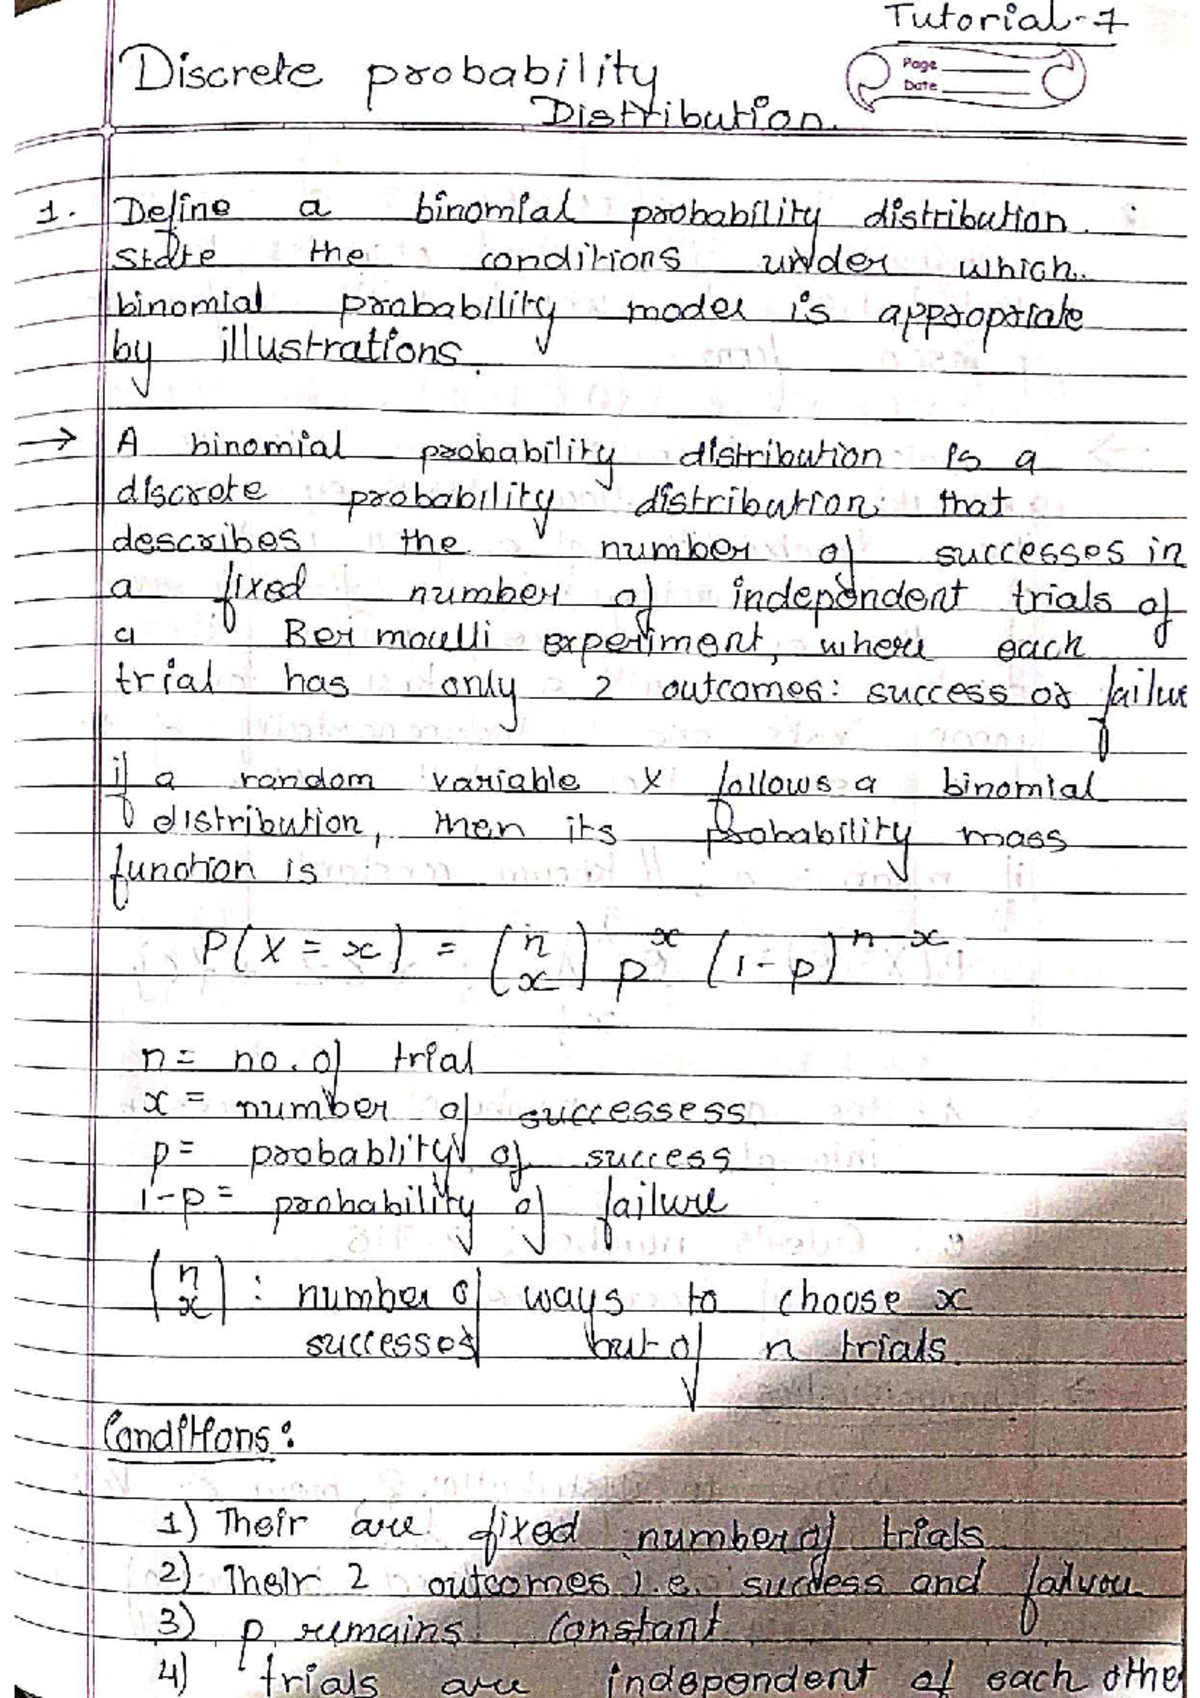 Tutorial-7
Page
Date
Discrete probability
Distribution.
1. Define a binomial probability distribution.
state the conditions under which
binomial probability model is appropriate
by illustrations.
→ A binomial probability distribution is a
discrete probability distribution that
describes the number of successes in
a fixed number of independent trials of
a Bernoulli experiment, where each
trial has only 2 outcomes: success or failure
if a random variable X follows a binomial
distribution, then its probability mass
function is
P(X = x) = (n x) p^x (1-p)^n-x
n = no. of trial
x = number of successess
p = probablity of success
1-p = probability of failure
(n x) : number of ways to choose x
successes out of n trials.
Conditions:
1) Their are fixed number of trials
2) Their 2 outcomes i.e. success and
3) p remains constant
4) trials are independent of each othe